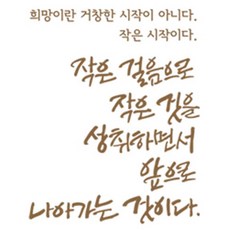 희망이란 거창한 시작이 아니다.
작은 시작이다.
작은 걸음으로
작은 것을
성취하면서
앞으로
나아가는 것이다.